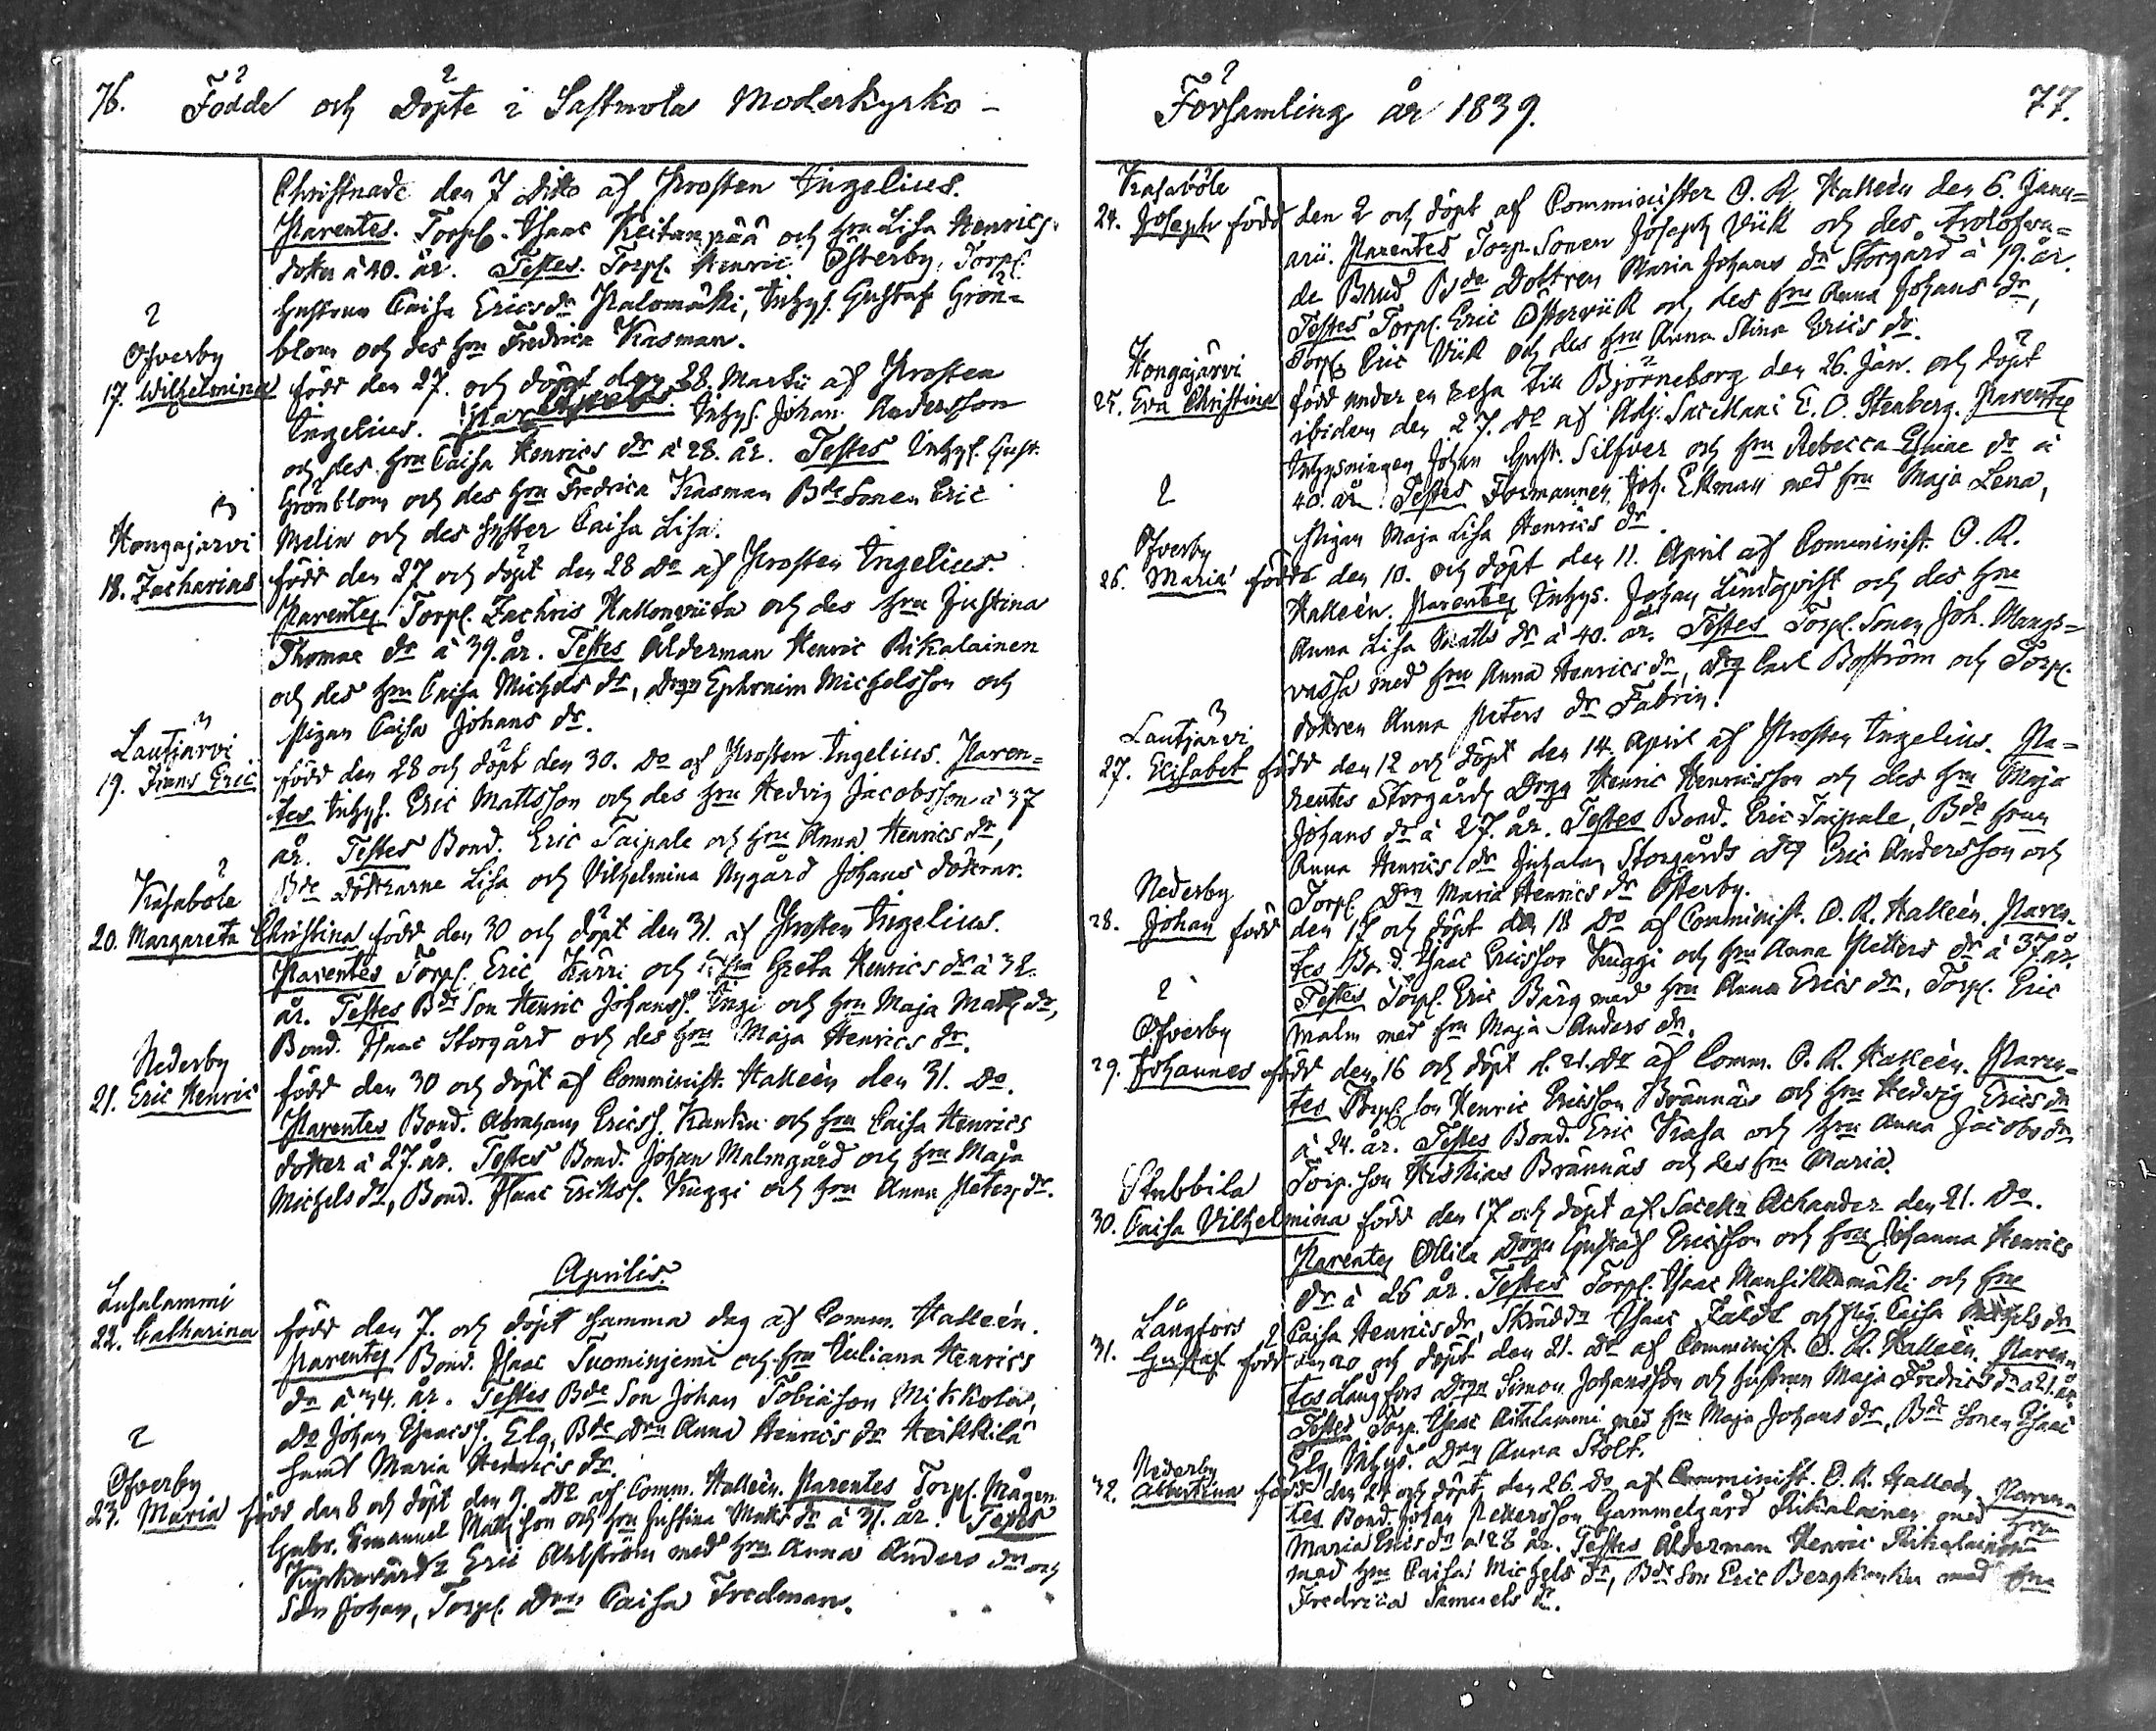 76. Födde och Döpte i Sastmola Moderkyrko-
Christnade den 7 Ditto af Prosten Ingelius.
Parentes. Torp. Isaac Keitanpää och hru Lisa Henrics-
dotter à 40. år. Testes. Torp. Henric Österby, Torp.
hustrun Caisa Ericsdr Kalomäki, Inhys. Gustaf Grön-
blom och des hru Fredrica Kasman.
2
Ofverby
17. Wilhelmina född den 27. och döpt den 28. Martii af Prosten
Ingelius. Parentes. Inhys. Johan Andersson
och des hru Caisa Henrics dr à 28. år. Testes Inhys. Gust.
Grönblom och des hru Fredrica Kasman Bde Sonen Eric
Melin och des syster Caisa Lisa.
3
Hongajärvi
18. Zacharias född den 27 och döpt den 28 do af Prosten Ingelius.
Parentes Torp. Zachris Kallonqviita och des hru Justina
Thomae dr à 39. år. Testes Ålderman Henric Rikalainen
och des hru Caisa Michels dr, Drgn Ephraim Michelsson och
pigan Caisa Johans dr.
3
Lautjärvi
19. Frans Eric född den 28 och döpt den 30. do af Prosten Ingelius. Paren-
tes Inhys. Eric Mattsson och des hru Hedvig Jacobsson à 37
år. Testes Bond. Eric Taipale och hru Anna Henrics dr,
Bde döttrarne Lisa och Vilhelmina Nygård Johans döttrar.
2
Kasaböle
20. Margareta Christina född den 30 och döpt den 31. af Prosten Ingelius.
Parentes Torp. Eric Kärri och hru Greta Henrics dr à 32.
år. Testes Bde Son Henric Johanss. Inge och hru Maja Matts dr,
Bond. Isaac Storgård och des hru Maja Henrics dr.
Nederby
21. Eric Henric född den 30 och döpt af Comminist. Halleèn den 31. Do.
Parentes Bond. Abraham Ericss. Kanka och hru Caisa Henrics
dotter à 27. år. Testes Bond. Johan Malmgård och hru Maja
Michels dr, Bond. Isaac Erikss. Knuggi och hru Anna Peters dr.
Aprilis.
Lusalammi
22. Catharina född den 7. och döpt samma dag af Comm. Halleèn.
Parentes Bond. Isaac Tuominjemi och hru Juliana Henrics
dr à 34. år. Testes Bde Son Johan Tobiasson Mikkola,
do Johan Isaacss. Elg, Bde drn Anna Henrics dr Heikkilä
samt Maria Henrics dr.
2
Ofverby
23. Maria född den 8 och döpt den 9. do af Comm. Halleèn. Parentes Torp. Mågen
Gabr. Emanuel Mattsson och hru Justina Matts dr à 31. år. Testes
Kyrkovärdn Eric Ahlström med hru Anna Anders dr och
Son Johan, Torp. Drn Caisa Fredman.
Församling år 1839. 77.
Kasaböle
24. Joseph född den 2 och döpt af Comminister O. R. Halleèn den 6. Janu-
arii. Parentes Torp. Sonen Joseph Viik och des trolofva-
de Brud Bde Dottren Maria Johans dr Storgård à 19. år.
Testes Torp. Eric Österviik och des hru Anna Johans dr,
Torp. Eric Viik och des hru Anna Stina Erics dr.
Hongajärvi
25. Eva Christina född under en resa till Björneborg den 26. Jan. och döpt
ibidem den 27. do af Adj. Sacellani E. O. Stenberg. Parentes
Inhysningen Johan Gust. Silfver och hru Rebecca Eliae dr à
40. år. Testes Formannen Joh. Ekman med hru Maja Lena,
pigan Maja Lisa Henrics dr.
2
Ofverby
26. Maria född den 10. och döpt den 11. April af Comminist. O. R.
Halleèn. Parentes Inhys. Johan Lindqvist och des hru
Anna Lisa Matts dr à 40. år. Testes Torp. Sonen Joh. Mangs-
vassa med hru Anna Henrics dr, Drg Carl Boström och Torp.
dottren Anna Peters dr Fabrin.
3
Lautjärvi
27. Elisabet född den 12 och döpt den 14. April af Prosten Ingelius. Pa-
rentes Storgårds Drgn Henric Henricsson och des hru Maja
Johans dr à 27. år. Testes Bond. Eric Taipale, Bde hrun
Anna Henrics dr Juhala, Storgårds drg Eric Andersson och
Torp. Drn Maria Henrics dr Österby.
Nederby
28. Johan född den 17 och döpt den 18 do af Comminist. O. R. Halleèn. Paren-
tes Bond. Isaac Ericsson Knuggi och hru Anna Petters dr à 37. år.
Testes Torp. Eric Bärg med hru Anna Erics dr, Torp. Eric
Malm med hru Maja Anders dr.
2
Ofverby
29. Johannes född den 16 och döpt d. 21. do af Comm. O. R. Halleèn. Paren-
tes Torp. Son Henric Ericsson Brännäs och hru Hedvig Erics dr
à 24. år. Testes Bond. Eric Kasa och hru Anna Jacobs dr
Torp. son Hiskias Brännäs och des hru Maria.
Stubbila
30. Caisa Vilhelmina född den 17 och döpt af Sacelln Achander den 21. do.
Parentes Ollila Drgn Gustaf Ericsson och hru Johanna Henrics
dr à 26 år. Testes Torp. Isaac Mansikkamäki och hru
Caisa Henrics dr, Skräddn Isaac Fäldt och pig. Caisa Michels dr
Långfors
31. Gustaf född den 20 och döpt den 21. do af Comminist. O. R. Halleèn. Paren-
tes Långfors Drgn Simon Johansson och hustrun Maja Fredrics dr à 21. år
Testes Torp. Isac Ahlslammi med hru Maja Johans dr, Bde Sonen Isaac
Elg, Inhys. Drn Anna Stolt.
Nederby
32. Albertina född den 24 och döpt den 26. do af Comminist. O. R. Halleèn. Paren-
tes Bond. Johan Pettersson Gammelgård Rikalainen med hru
Maria Erics dr à 28 år. Testes Ålderman Henric Rikalainen
med hru Caisa Michels dr, Bde Son Eric Bergkanka med hru
Fredrica Samuels dr.